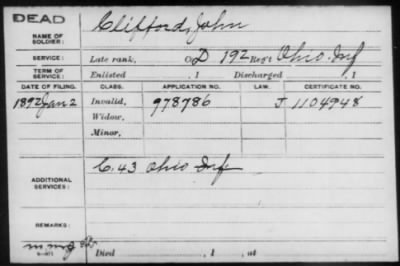 DEAD
NAME OF SOLDIER: Clifford, John
SERVICE: Late rank, Co D 192 Reg't Ohio Inf
TERM OF SERVICE: Enlisted , 1 Discharged , 1
DATE OF FILING. CLASS. APPLICATION NO. LAW. CERTIFICATE NO.
1892 Jan 2 Invalid, 978786 J 1104948
Widow,
Minor,
ADDITIONAL SERVICES: C. 43 Ohio Inf
REMARKS:
Died , 1 , at